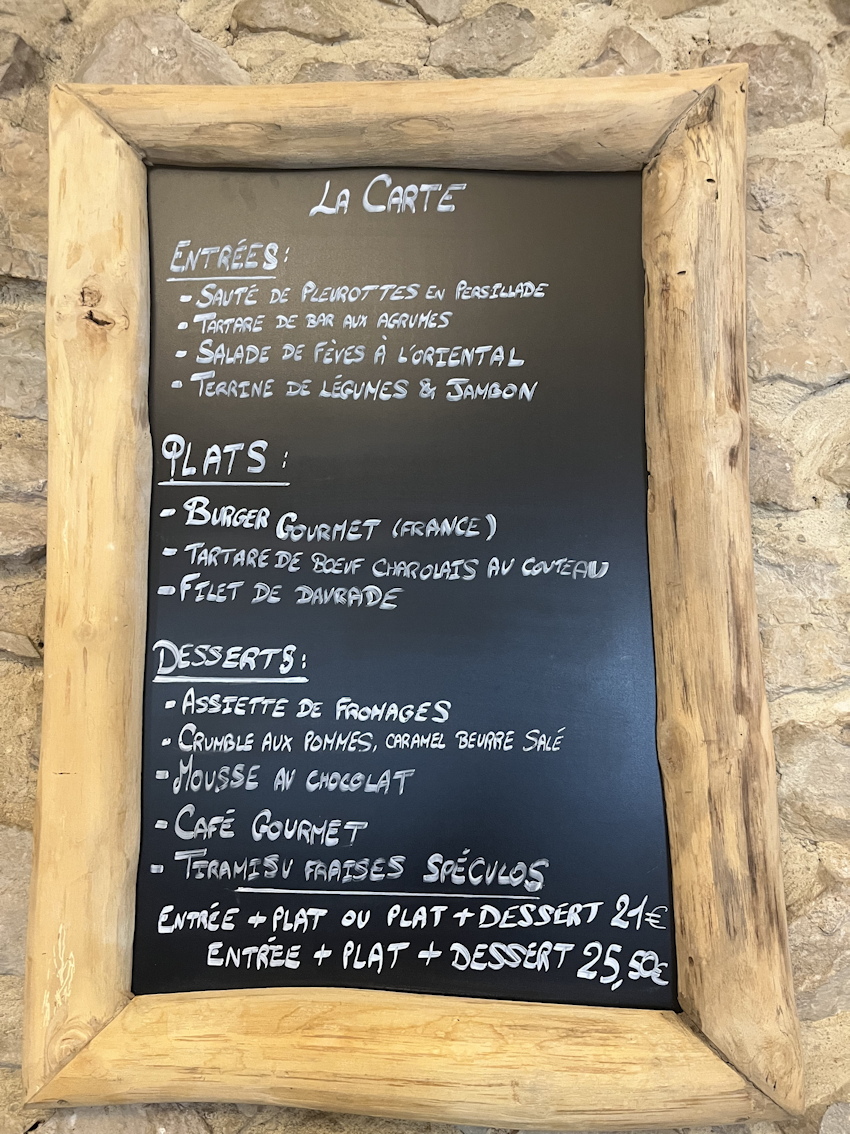 LA CARTE
ENTRÉES :
- SAUTÉ DE PLEUROTTES EN PERSILLADE
- TARTARE DE BAR AUX AGRUMES
- SALADE DE FÈVES À L'ORIENTAL
- TERRINE DE LÉGUMES & JAMBON
PLATS :
- BURGER GOURMET (FRANCE)
- TARTARE DE BŒUF CHAROLAIS AU COUTEAU
- FILET DE DAURADE
DESSERTS :
- ASSIETTE DE FROMAGES
- CRUMBLE AUX POMMES, CARAMEL BEURRE SALÉ
- MOUSSE AU CHOCOLAT
- CAFÉ GOURMET
- TIRAMISU FRAISES SPÉCULOS
ENTRÉE + PLAT OU PLAT + DESSERT 21€
ENTRÉE + PLAT + DESSERT 25,50€